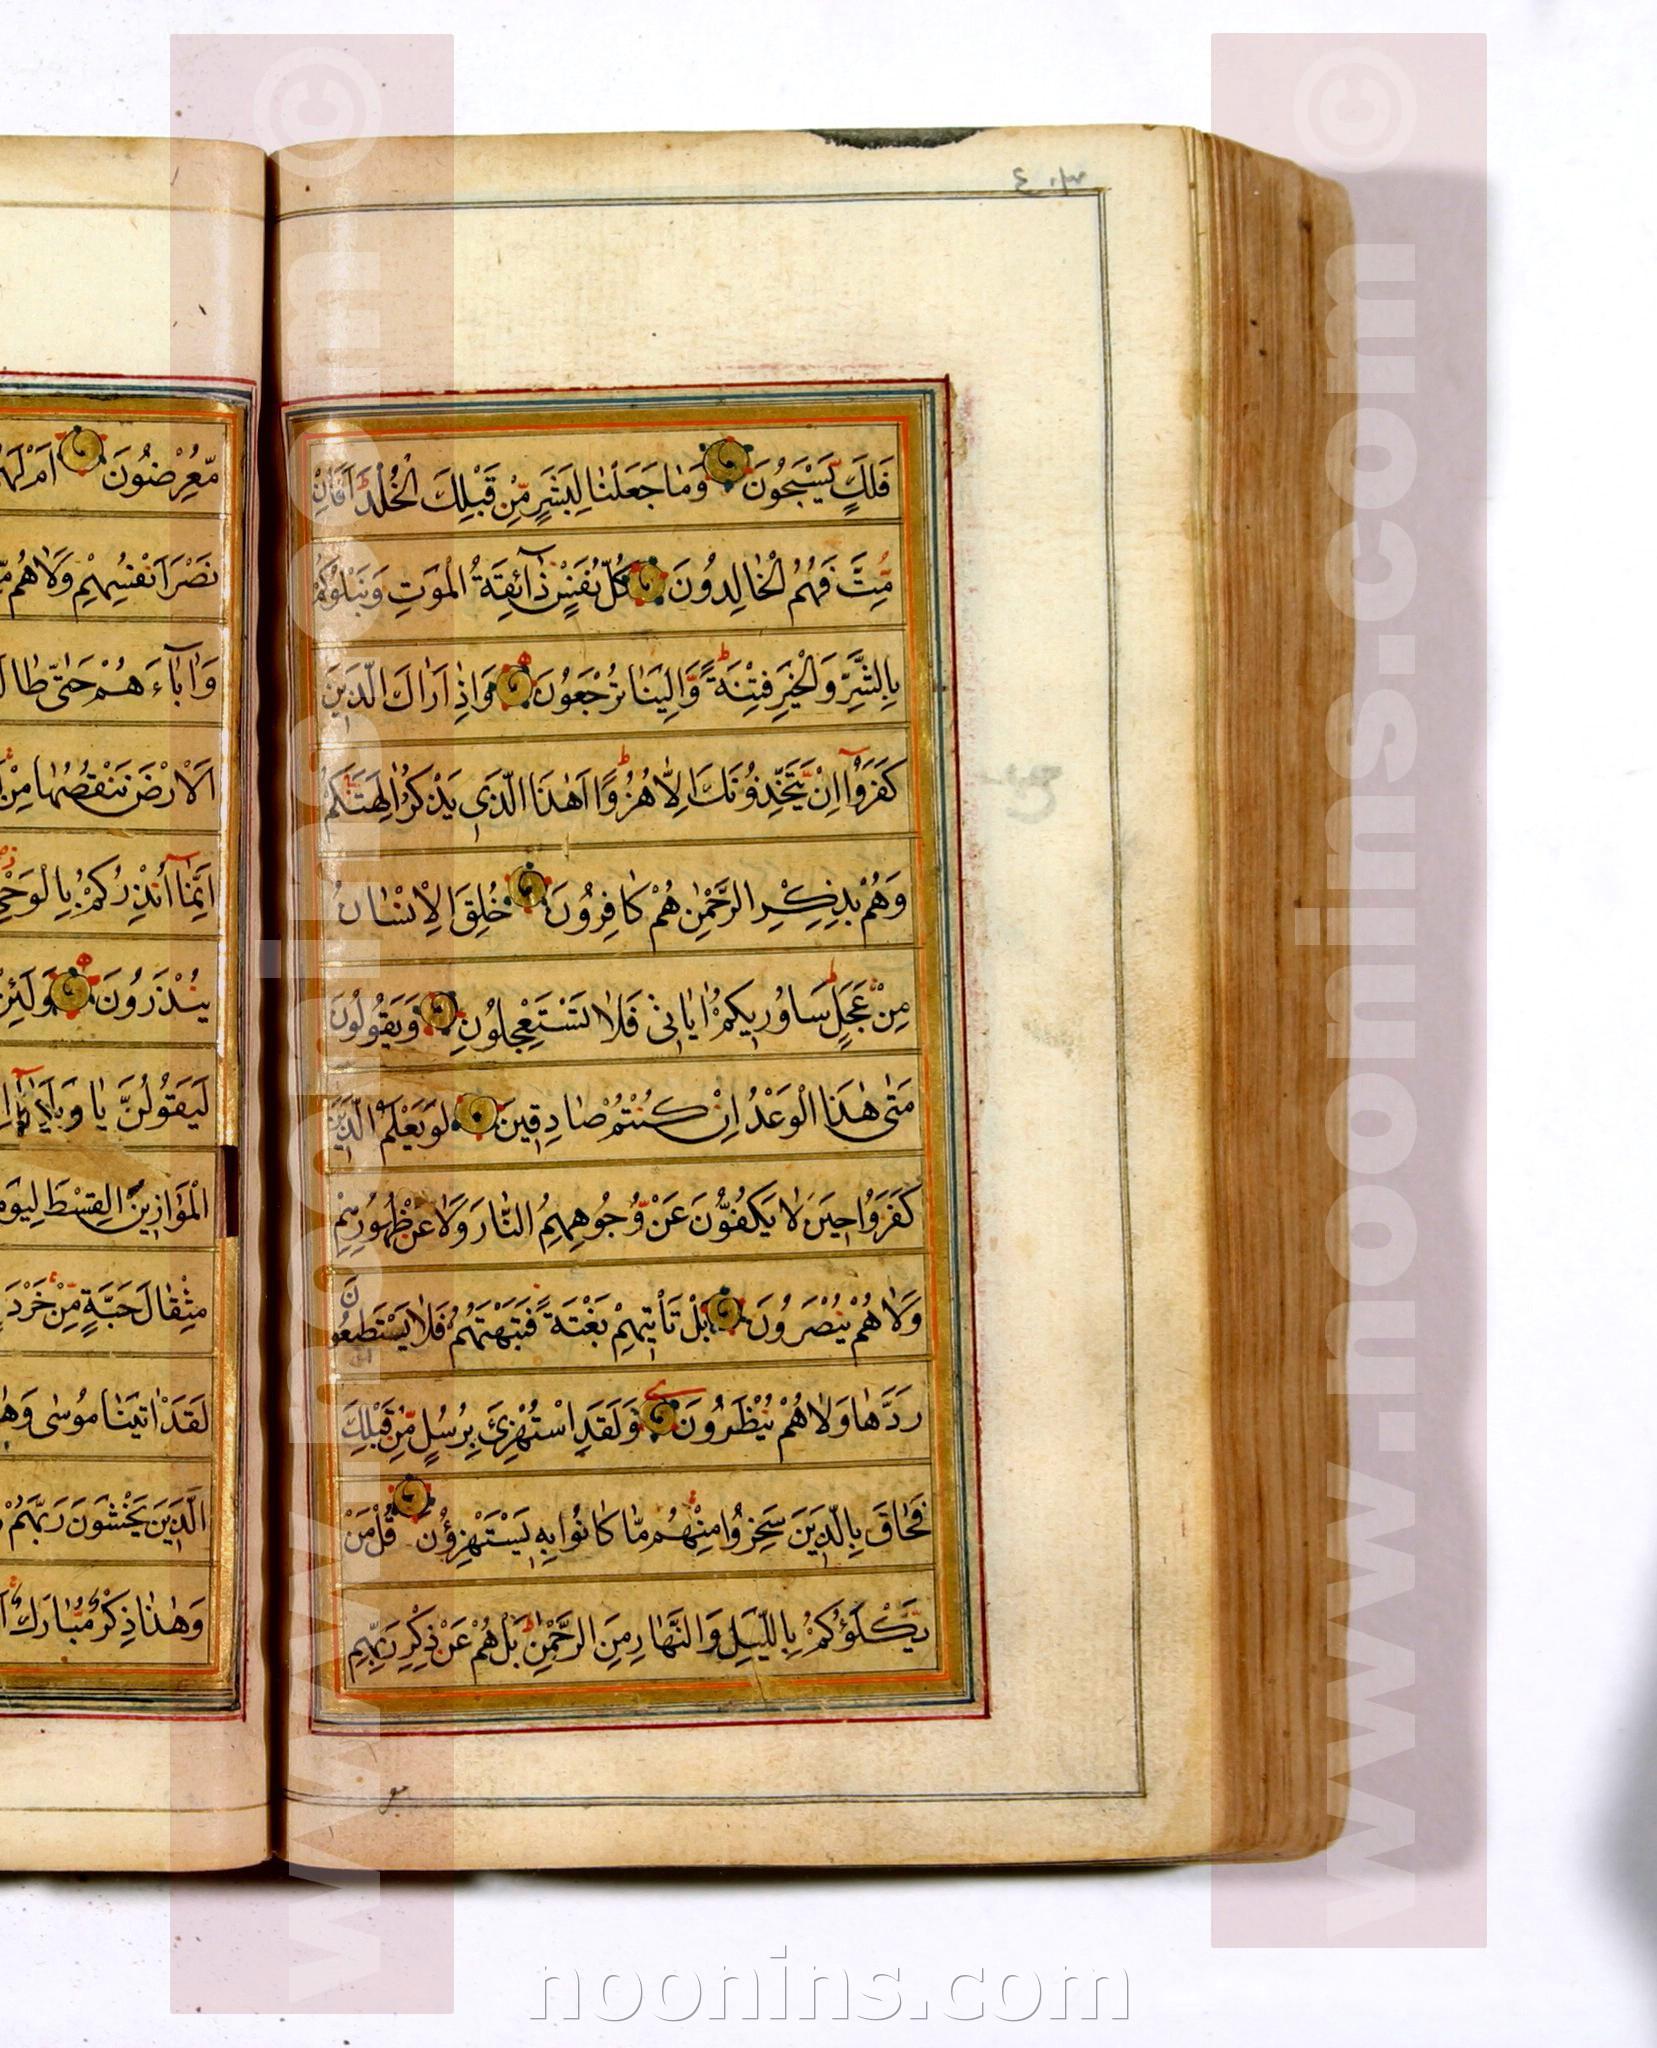 فَلَكٍ يَسْبَحُونَ وَمٰا جَعَلْنٰا لِبَشَرٍ مِّن قَبْلِكَ الْخُلْدَ اَفَاِنْ
مِّتَّ فَهُمُ الْخٰالِدُونَ كُلُّ نَفْسٍ ذٰآئِقَةُ الْمَوْتِ وَنَبْلُوكُمْ
بِالشَّرِّ وَالْخَيْرِ فِتْنَةً وَّاِلَيْنٰا تُرْجَعُونَ وَاِذٰا رَاٰكَ الَّذِينَ
كَفَرُوٓا اِنْ يَتَّخِذُونَكَ اِلّٰا هُزُوًا اَهٰذَا الَّذِى يَذْكُرُ اٰلِهَتَكُمْ
وَهُمْ بِذِكْرِ الرَّحْمٰنِ هُمْ كٰافِرُونَ خُلِقَ الْاِنْسٰانُ
مِنْ عَجَلٍ سَاُورِيكُمْ اٰيٰاتِى فَلٰا تَسْتَعْجِلُونِ وَيَقُولُونَ
مَتٰى هٰذَا الْوَعْدُ اِنْ كُنْتُمْ صٰادِقِينَ لَوْ يَعْلَمُ الَّذِينَ
كَفَرُوا حِينَ لٰا يَكُفُّونَ عَنْ وُّجُوهِهِمُ النّٰارَ وَلٰا عَنْ ظُهُورِهِمْ
وَلٰا هُمْ يُنْصَرُونَ بَلْ تَأْتِيهِمْ بَغْتَةً فَتَبْهَتُهُمْ فَلٰا يَسْتَطِيعُونَ
رَدَّهٰا وَلٰا هُمْ يُنْظَرُونَ وَلَقَدِ اسْتُهْزِئَ بِرُسُلٍ مِّنْ قَبْلِكَ
فَحٰاقَ بِالَّذِينَ سَخِرُوا مِنْهُمْ مّٰا كٰانُوا بِهِ يَسْتَهْزِؤُنَ قُلْ مَنْ
يَّكْلَؤُكُمْ بِاللَّيْلِ وَالنَّهٰارِ مِنَ الرَّحْمٰنِ بَلْ هُمْ عَنْ ذِكْرِ رَبِّهِمْ
مُّعْرِضُونَ اَمْ لَهُمْ
نَصْرَ اَنْفُسِهِمْ وَلٰا هُمْ
وَاٰبٰآءَهُمْ حَتّٰى طٰالَ
الْاَرْضَ نَنْقُصُهٰا مِنْ
اِنَّمٰٓا اُنْذِرُكُمْ بِالْوَحْىِ
يُنْذَرُونَ وَلَئِنْ
لَيَقُولُنَّ يٰا وَيْلَنٰٓا
الْمَوٰازِينَ الْقِسْطَ لِيَوْمِ
مِثْقٰالَ حَبَّةٍ مِّنْ خَرْدَ
لَقَدْ اٰتَيْنٰا مُوسٰى وَهٰ
الَّذِينَ يَخْشَوْنَ رَبَّهُمْ
وَهٰذٰا ذِكْرٌ مُّبٰارَكٌ
www.noonins.com ©
www.noonins.com ©
noonins.com